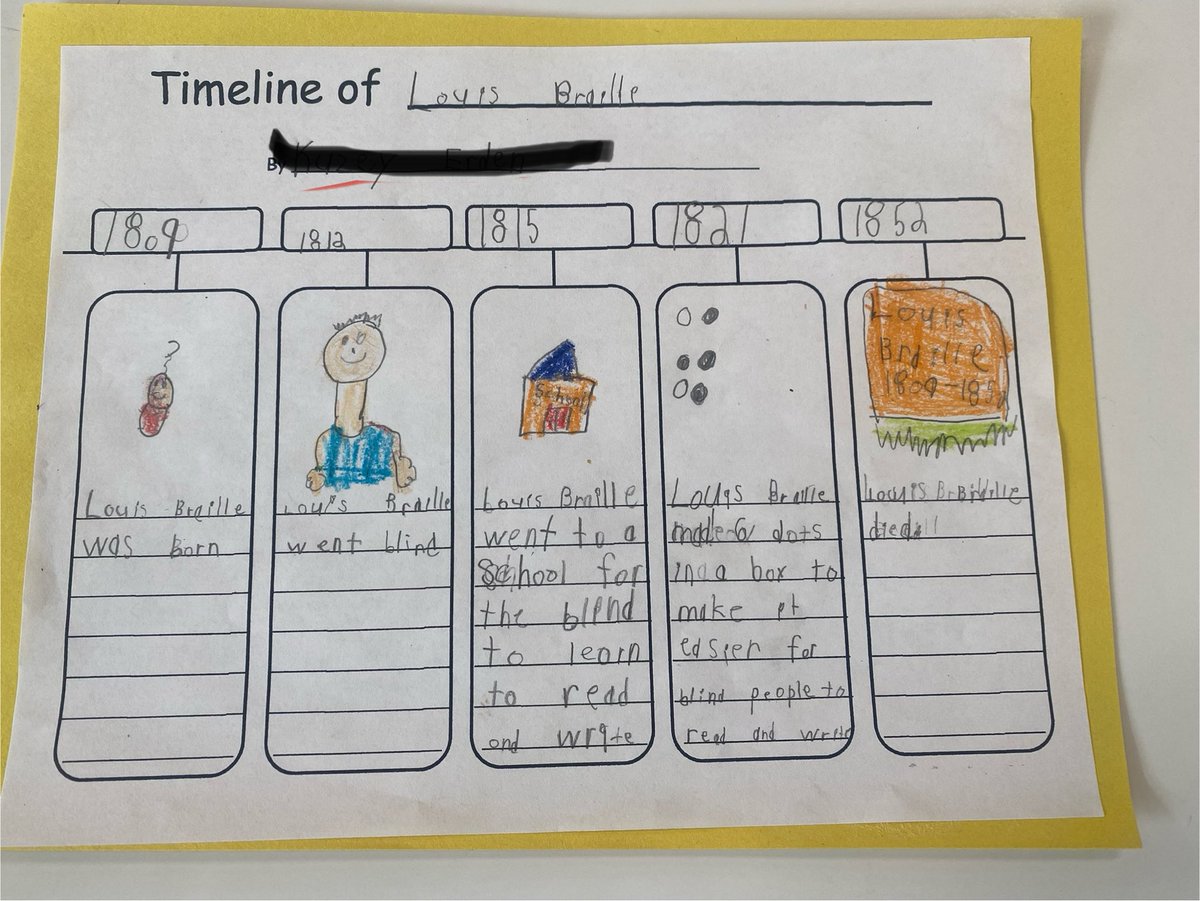 Timeline of Louis Braille
By
1809
1812
1815
1821
1852
Louis Braille
was born
Louis Braille
went blind
School
Louis Braille
went to a
School for
the blind
to learn
to read
and write
Louis Braille
made 6 dots
in a box to
make it
easier for
blind people to
read and write
Louis
Braille
1809-1852
Louis Braille
died